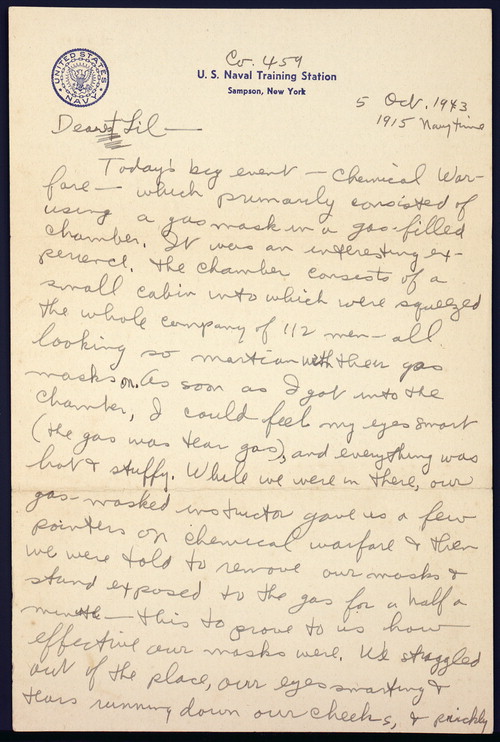 Co. 459
UNITED STATES NAVY
U. S. Naval Training Station
Sampson, New York
5 Oct. 1943
1915 Navy time
Dearest Lil —
Today's big event — Chemical War-
fare — which primarily consisted of
using a gas mask in a gas-filled
chamber. It was an interesting ex-
perience. The chamber consists of a
small cabin into which were squeezed
the whole company of 112 men — all
looking so martian with their gas
masks on. As soon as I got into the
chamber, I could feel my eyes smart
(the gas was tear gas), and everything was
hot & stuffy. While we were in there, our
gas-masked instructor gave us a few
pointers on chemical warfare & then
we were told to remove our masks &
stand exposed to the gas for a half a
minute — this to prove to us how
effective our masks were. We straggled
out of the place, our eyes smarting &
tears running down our cheeks, & prickly